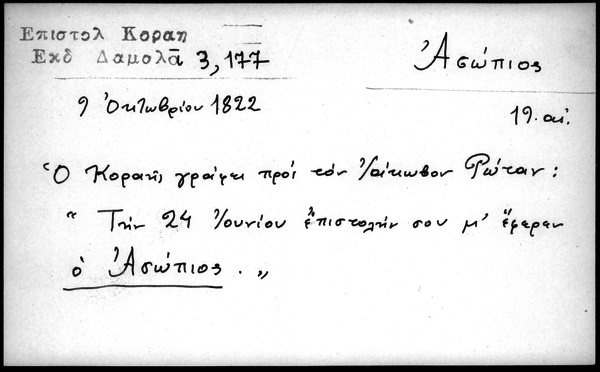 Επιστολ Κοραη
Εκδ Δαμαλᾶ 3, 177
Ἀσώπιος
9 Ὀκτωβρίου 1822
19. αἰ.
Ὁ Κοραῆς γράφει πρὸς τὸν Ἰάκωβον Ρώταν:
" Τὴν 24 Ἰουνίου ἐπιστολήν σου μ' ἔφερεν
ὁ Ἀσώπιος. "